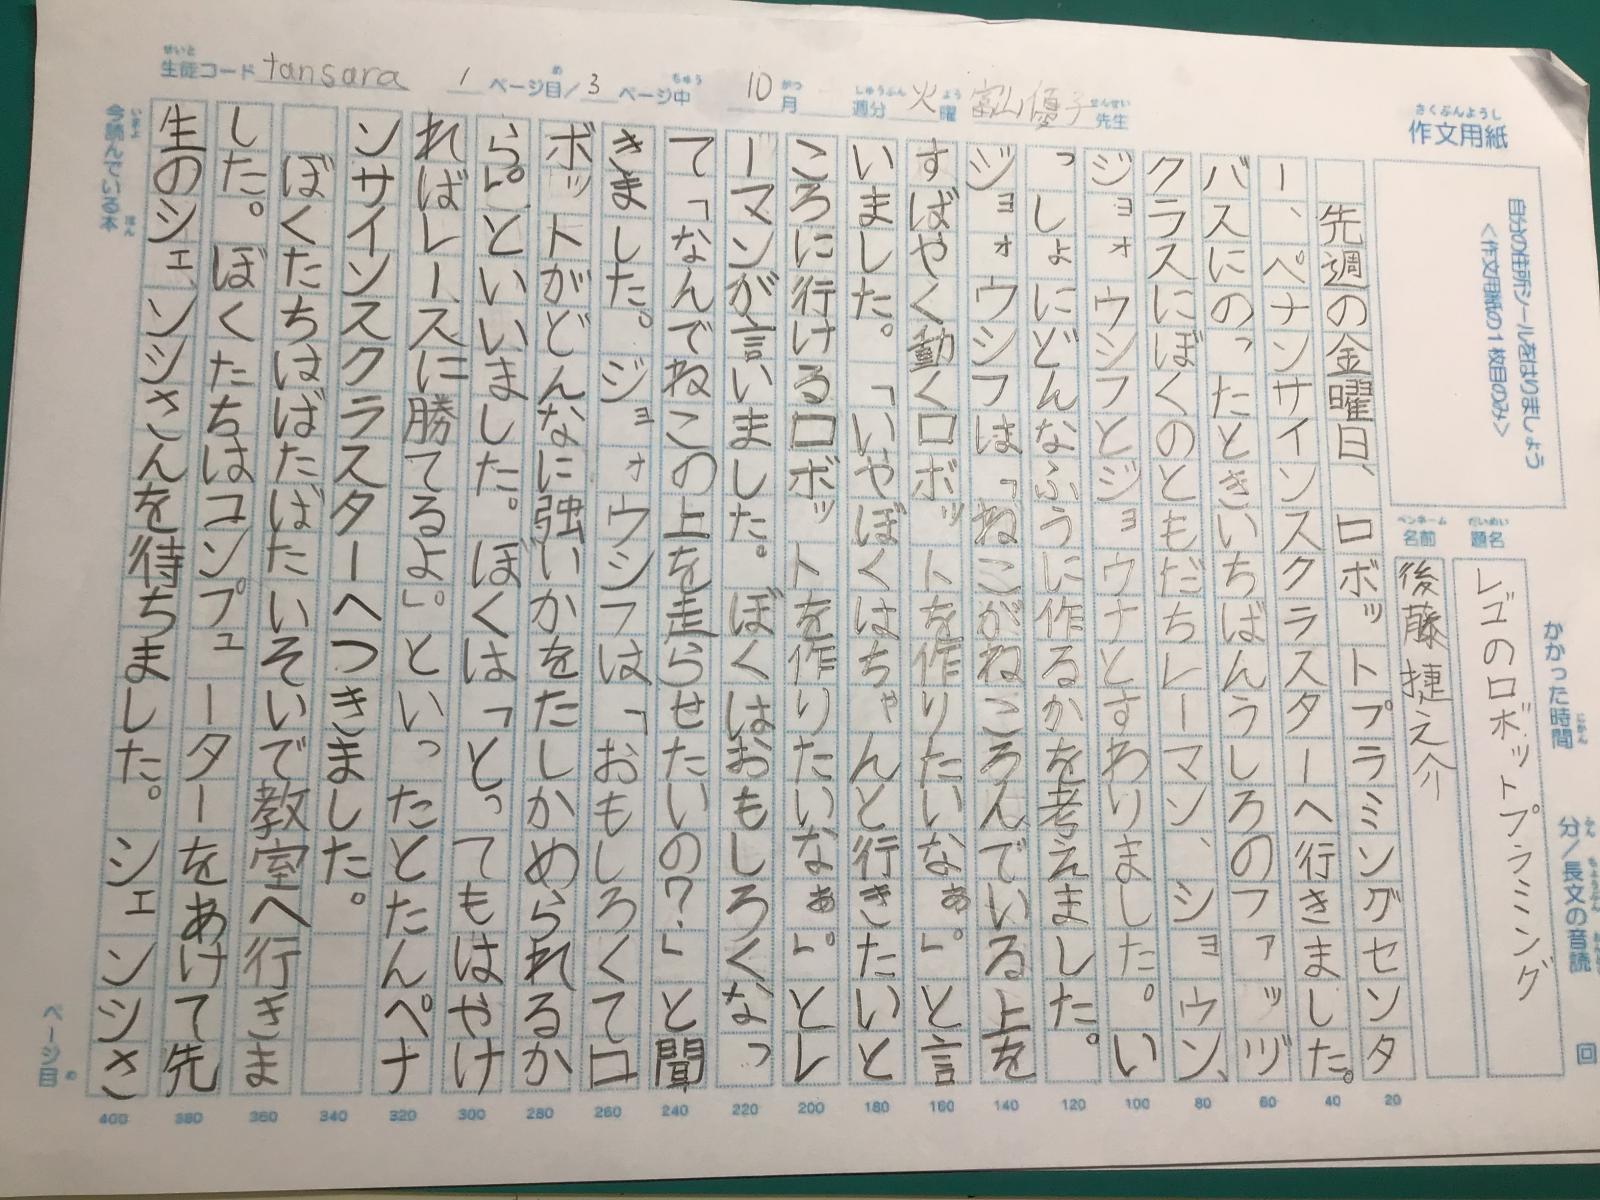 せいと
生徒コード tansara 1 ページ目/3 ページ中 10月 週分 火曜 富山優子先生
さくぶんようし
作文用紙
自分の住所シールをはりましょう
<作文用紙の1枚目のみ>
かかった時間 分/長文の音読 回
だいめい
題名 レゴのロボットプラミング
ペンネーム
名前 後藤捷之介
先週の金曜日、ロボットプラミングセンタ
ー、ペナンサインスクラスターへ行きました。
バスにのったときいちばんうしろのファッヅ
クラスにぼくのともだちレーマン、ショウン、
ジョォウシフとジョウナとすわりました。い
っしょにどんなふうに作るかを考えました。
ジョォウシフは「ねこがねころんでいる上を
すばやく動くロボットを作りたいなぁ。」と言
いました。「いやぼくはちゃんと行きたいと
ころに行けるロボットを作りたいなぁ。」とレ
ーマンが言いました。ぼくはおもしろくなっ
て「なんでねこの上を走らせたいの?」と聞
きました。ジョォウシフは「おもしろくてロ
ボットがどんなに強いかをたしかめられるか
ら。」といいました。ぼくは「とってもはやけ
ればレースに勝てるよ。」といったとたんペナ
ンサインスクラスターへつきました。
ぼくたちはばたばたいそいで教室へ行きま
した。ぼくたちはコンプューターをあけて先
生のシェンシさんを待ちました。シェンシさ
20
40
60
80
100
120
140
160
180
200
220
240
260
280
300
320
340
360
380
400
いまよ ほん
今読んでいる本
ページ目